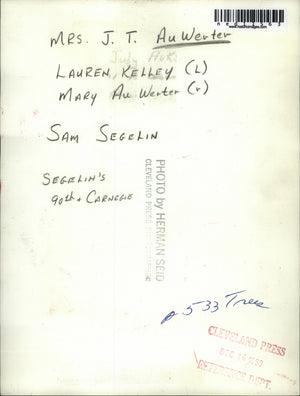 MRS. J. T. AuWerter
LAUREN KELLEY (L)
MARY AU WERTER (r)
SAM SEGELIN
SEGELIN'S
90th + CARNEGIE
PHOTO by HERMAN SEID
CLEVELAND PRESS
p 533 Tree
CLEVELAND PRESS
DEC
REFERENCE DEPT.